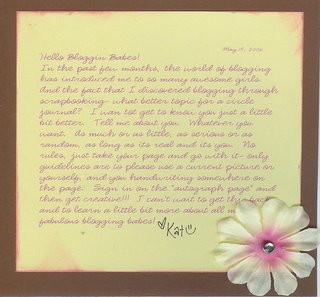 May 15, 2006
Hello Bloggin Babes!
In the past few months, the world of blogging
has introduced me to so many awesome girls.
And the fact that I discovered blogging through
scrapbooking- what better topic for a circle
journal? I wan tot get to know you just a little
bit better. Tell me about you. Whatever you
want. As much or as little, as serious or as
random, as long as its real and its you. No
rules, just take your page and go with it- only
guidelines are to please use a current picture or
yourself, and you handwriting somewhere on
the page. Sign in on the "autograph page" and
then get creative!!! I can't wait to get this back
and to learn a little bit more about all m
fabulous blogging babes! Kat